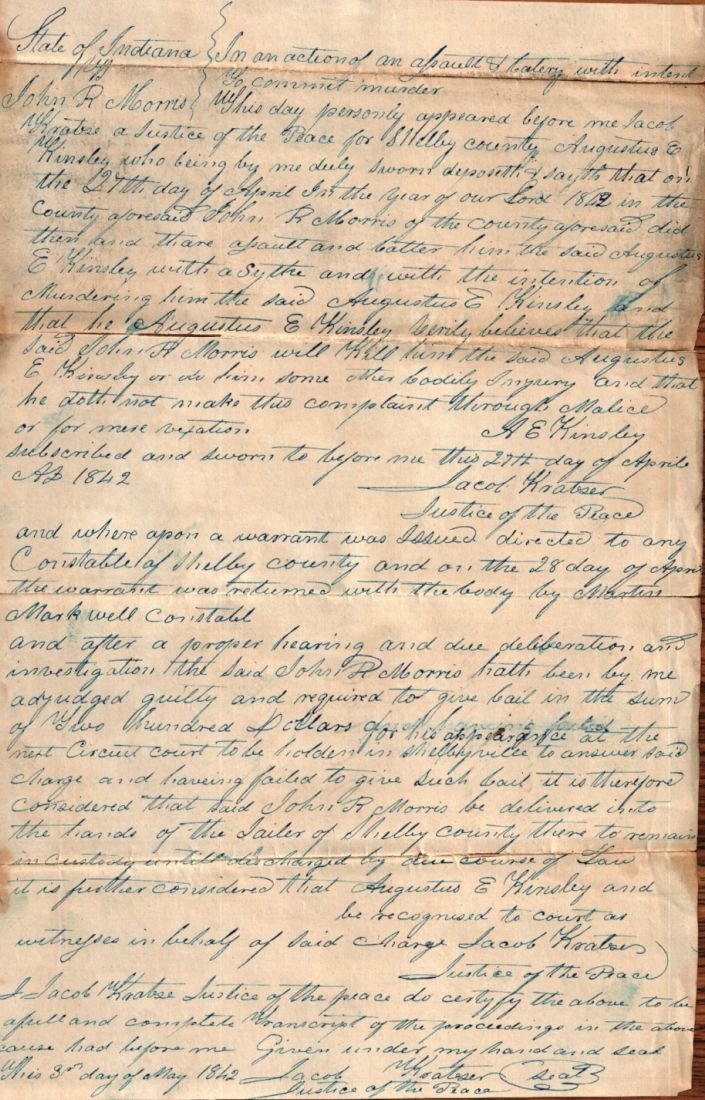 State of Indiana } In an action of an assault & batery with intent
vs to commit murder
John R Morris } This day personly appeared before me Jacob
Kratse a Justice of the Peace for Shelby county Augustus E
Kinsley who being by me duly sworn deposeth & sayth that on
the 27th day of April In the year of our Lord 1842 in the
County aforesaid John R Morris of the county aforesaid did
then and thare assault and batter him the said Augustus
E Kinsley with a Sythe and with the intention of
Murdering him the said Augustus E Kinsley and
that he Augustus E Kinsley verily believes that the
said John R Morris will Kill him the said Augustus
E Kinsley or do him some other bodily Injury and that
he doth not make this complaint through Malice
or for mere vexation A E Kinsley
subscribed and sworn to before me this 27th day of Aprile
AD 1842 Jacob Kratser
Justice of the Peace
and where apon a warrant was Issued directed to any
Constable of Shelby county and on the 28 day of April
the warrant was returned with the body by Martin
Markwell Constabl
and after a proper hearing and due deliberation and
investigation the said John R Morris hath been by me
adjudged guilty and required to give bail in the sum
of Two hundred Dollars for his appearance at the
next Circuit court to be holden in Shelbyville to answer said
charge and haveing failed to give such bail it is therefore
Considered that said John R Morris be delivered into
the hands of the Jailer of Shelby county there to remain
in custody untill discharged by due course of Law
it is further considered that Augustus E Kinsley and
be recognised to court as
witnesses in behalf of said charge Jacob Kratser
Justice of the Peace
I Jacob Kratse Justice of the peace do certyfy the above to be
a full and complete Transcript of the proceedings in the above
cause had before me Given under my hand and seal
This 3rd day of May 1842 Jacob Kratser (seal)
Justice of the Peace